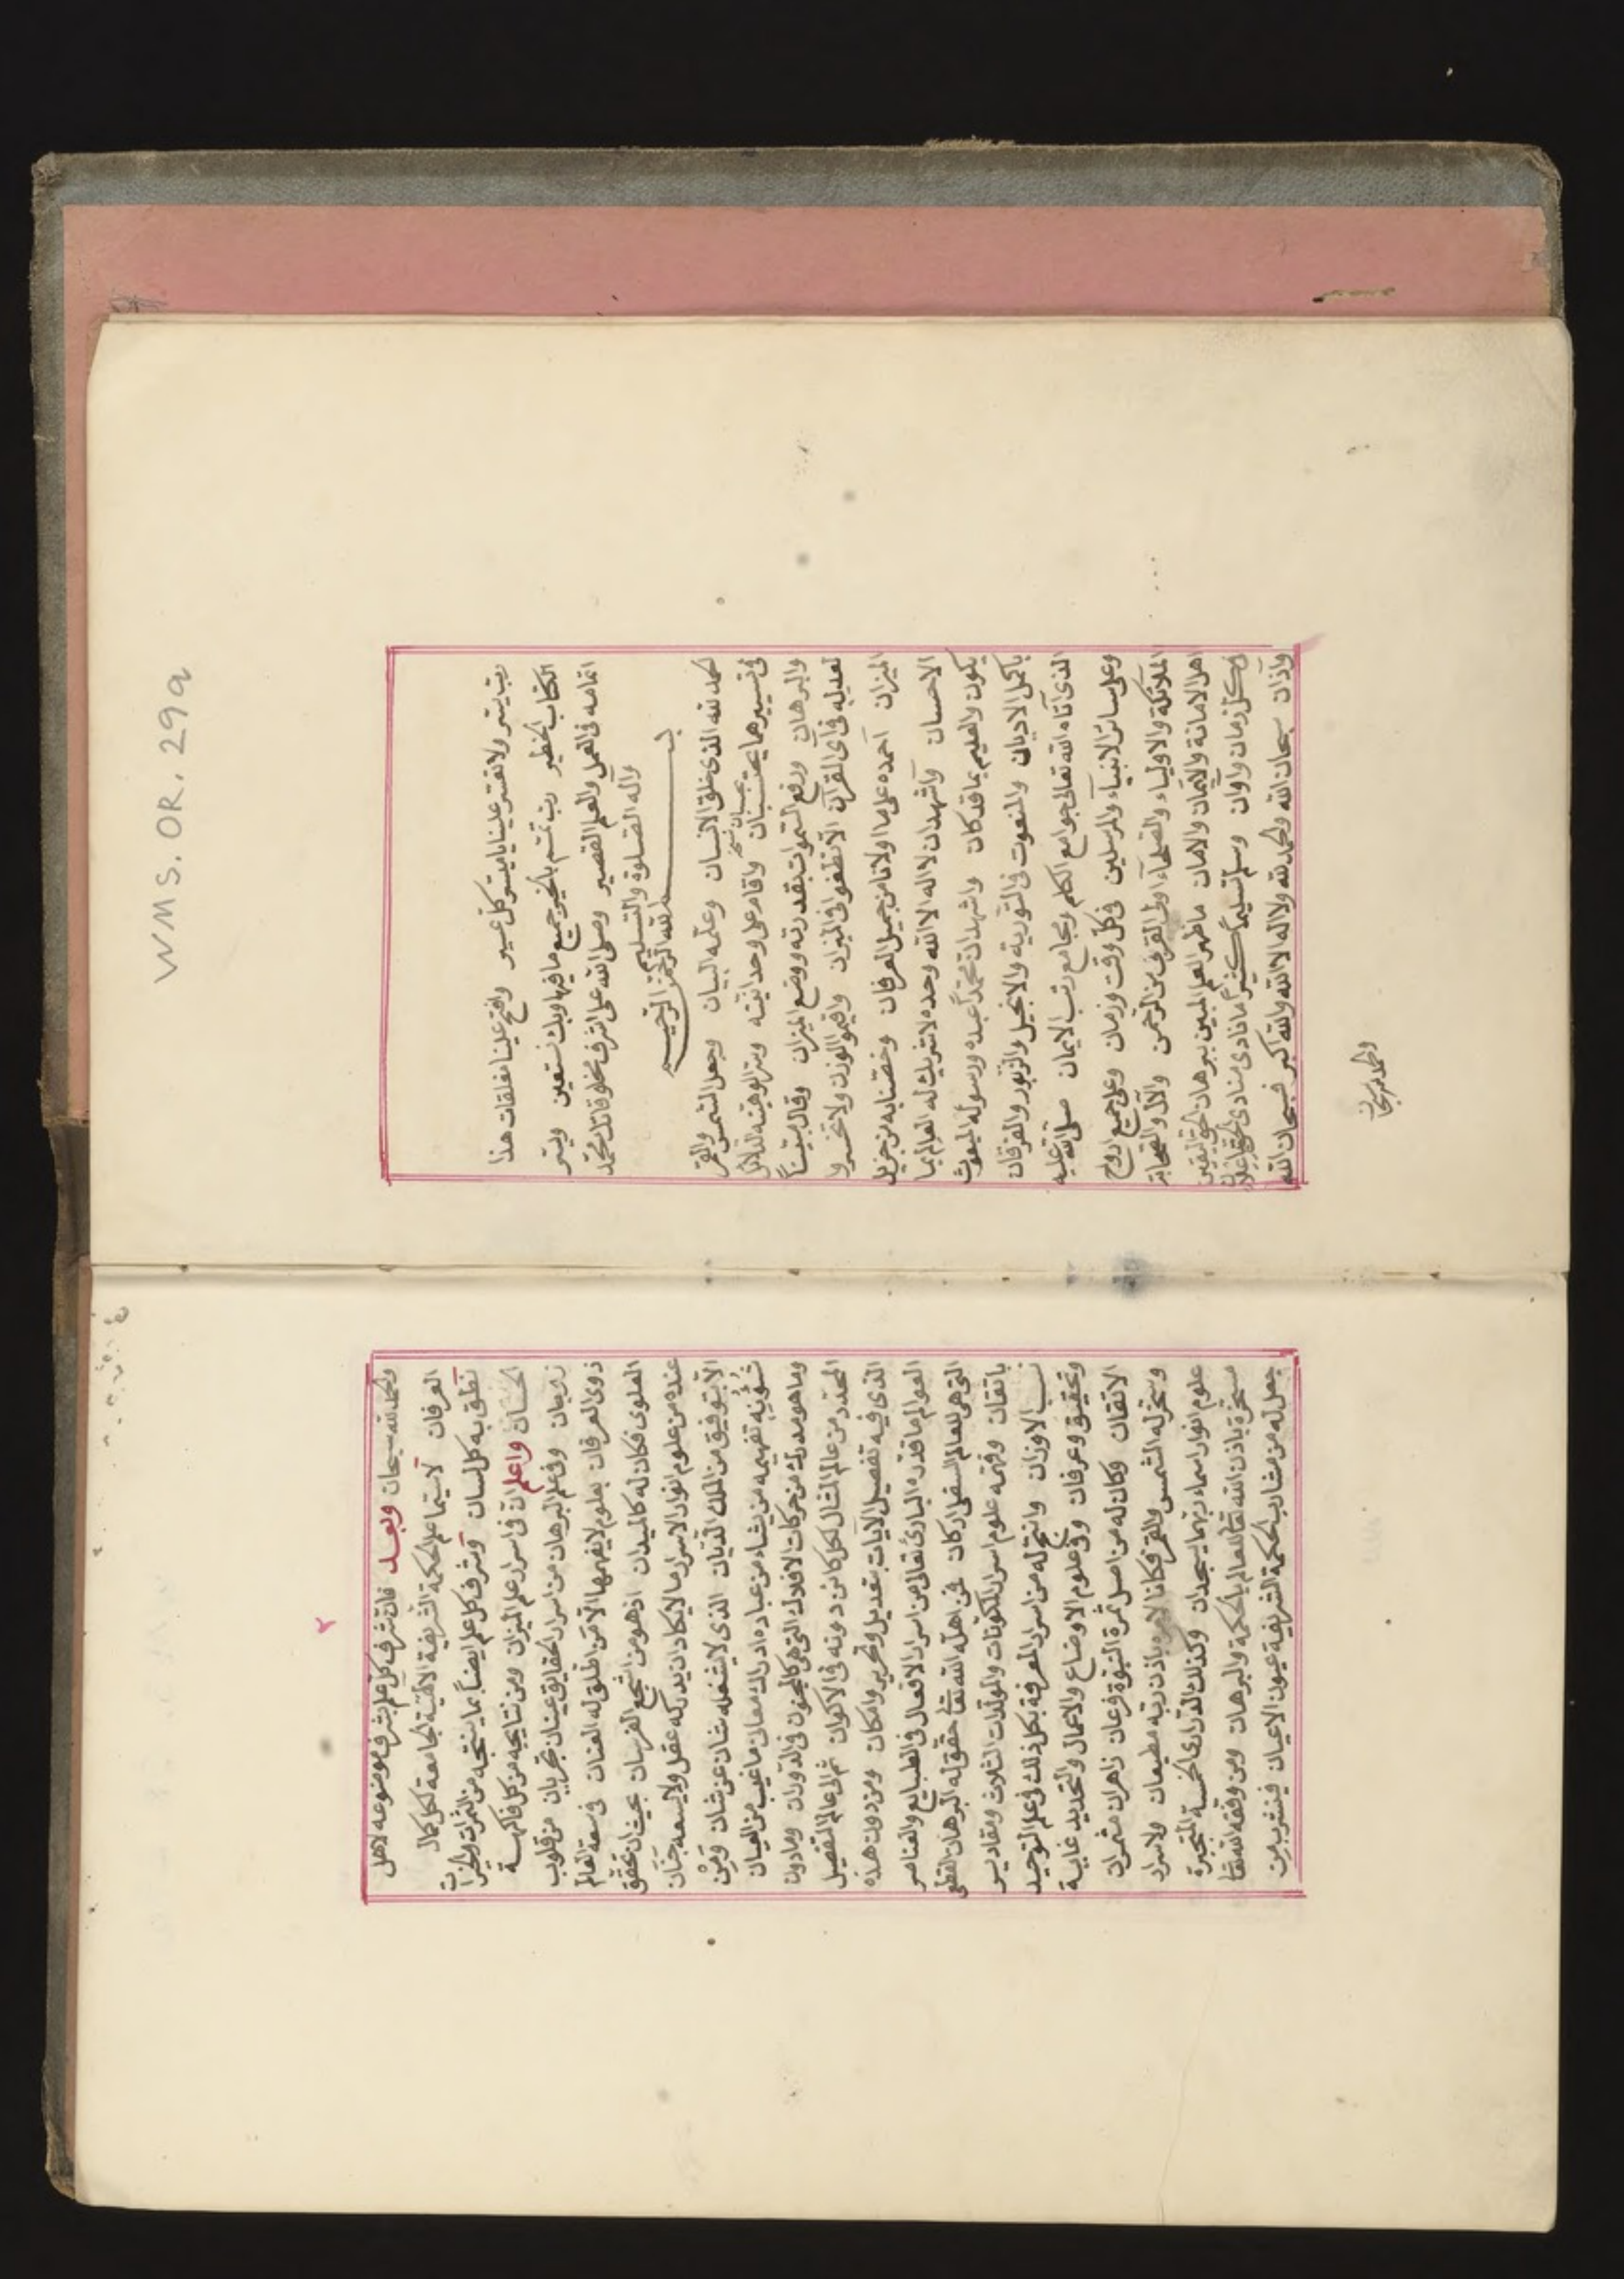 WMS. OR. 29a
رب يسر ولا تعسر علينا يا ميسر كل عسير وافتح علينا مغلقات هذا
الكتاب الخطير رب تمم بالخير جميع ما فيها وبك نستعين ويسر
اتمامه في العمل والعلم القصير وصلى الله على اشرف مخلوقاتك محمد
وآله الصلوة والتسليم
بسم الله الرحمن الرحيم
الحمد لله الذي خلق الانسان وعلمه البيان وجعل الشمس والقمر
في تسييرهما بحسبان واقام على وحدانيته وسر الوهيته الدلائل
والبرهان ورفع السموات بقدرته ووضع الميزان وقال مبينا
تعديله في آي القرآن الا تطغوا في الميزان واقيموا الوزن ولا تخسروا
الميزان احمده على ما اولانا من جميل العرفان وخصنا به من جزيل
الاحسان واشهد ان لا اله الا الله وحده لا شريك له العالم بما
يكون والعليم بما قد كان واشهد ان محمدا عبده ورسوله المبعوث
باكمل الاديان والمنعوت في التورية والانجيل والزبور والفرقان
الذي آتاه الله تعالى جوامع الكلم ومجامع رتب الايمان صلى الله عليه
وعلى سائر الانبياء والمرسلين في كل وقت وزمان وعلى جميع ارواح
الملائكة والاولياء والصلحاء اولى القرب من الرحمن والآل والصحابة
اهل الامانة والايمان والامان ما ظهر العلم المبين ببرهان الحق اليقين
في كل زمان واوان وسلم تسليما كثيرا ما نادى منادي الحق باعلان
واذان سبحان الله والحمد لله ولا اله الا الله والله اكبر فسبحان الله
والحمد لله سبحان
٢
والحمد لله سبحان وبعد فان شرف كل علم بشرف موضوعه لاهل
العرفان لاسيما علم الحكمة الشريفة الالهية الجامعة لكل كمال
نطق به كل لسان وشرف كل علم ايضا بما ينتجه من الثمرات والخيرات
الحسان واعلم ان في اسرار علم الميزان ومن نتايجه من كل فاكهة
زوجان وفي علم البرهان من اسرار الحقايق عينان تجريان من قلوب
ذوى العرفان بعلوم لا يفهمها الا من اطلق له العنان في سعة العالم
العلوى فكان له كالميدان اذ هو من اشجع الفرسان بحيث ان تحقق
عنده من علوم انوار الاسرار ما لا يكاد ان يدركه عقل ولا يسعه جنان
الا بتوفيق من الملك الديان الذي لا يشغله شان عن شان ومن
شؤونه تفهيمه من يشاء من عباده ادراك معاني ما غيب من العيان
وما هو مدرك من حركات الافلاك التي هي كالمجنون في الدوران وما دون
المحدد من عالم المثال لكل كائن دونه في الاكوان ثم الى عالم التفصيل
الذي فيه تفصيل الايات بتعديل وتحرير وامكان ومن دون هذه
العوالم ما قدره البارئ تعالى من اسرار الافعال في الطبايع والعناصر
التي هي للعالم السفلى اركان فمن اهله الله تعالى حقق له البرهان القطعى
باتقان وفهمه علوم اسرار المكونات والمولدات الثلاث ومقادير
نسب الاوزان وانتج له من اسرار المعرفة بكل ذلك في علم التوحيد
وتحقيق وعرفان وفي علوم الاوضاع والاعمال والتحديد غاية
الاتقان وكان له من اصل ثمرة النبوة فرعان زاهران مثمران
وسخر له الشمس والقمر فكانا لامره باذن ربه مطيعان ولاسرار
علوم انوار اسماء ربهما يسجدان وكذلك الدرارى الخمسة المتحيرة
مسخرة باذن الله تعالى للعالم بالحكمة والبرهان ومن وفقه الله تعالى
جعل له من مشارب الحكمة الشريفة عيون الاعيان فيشرب من